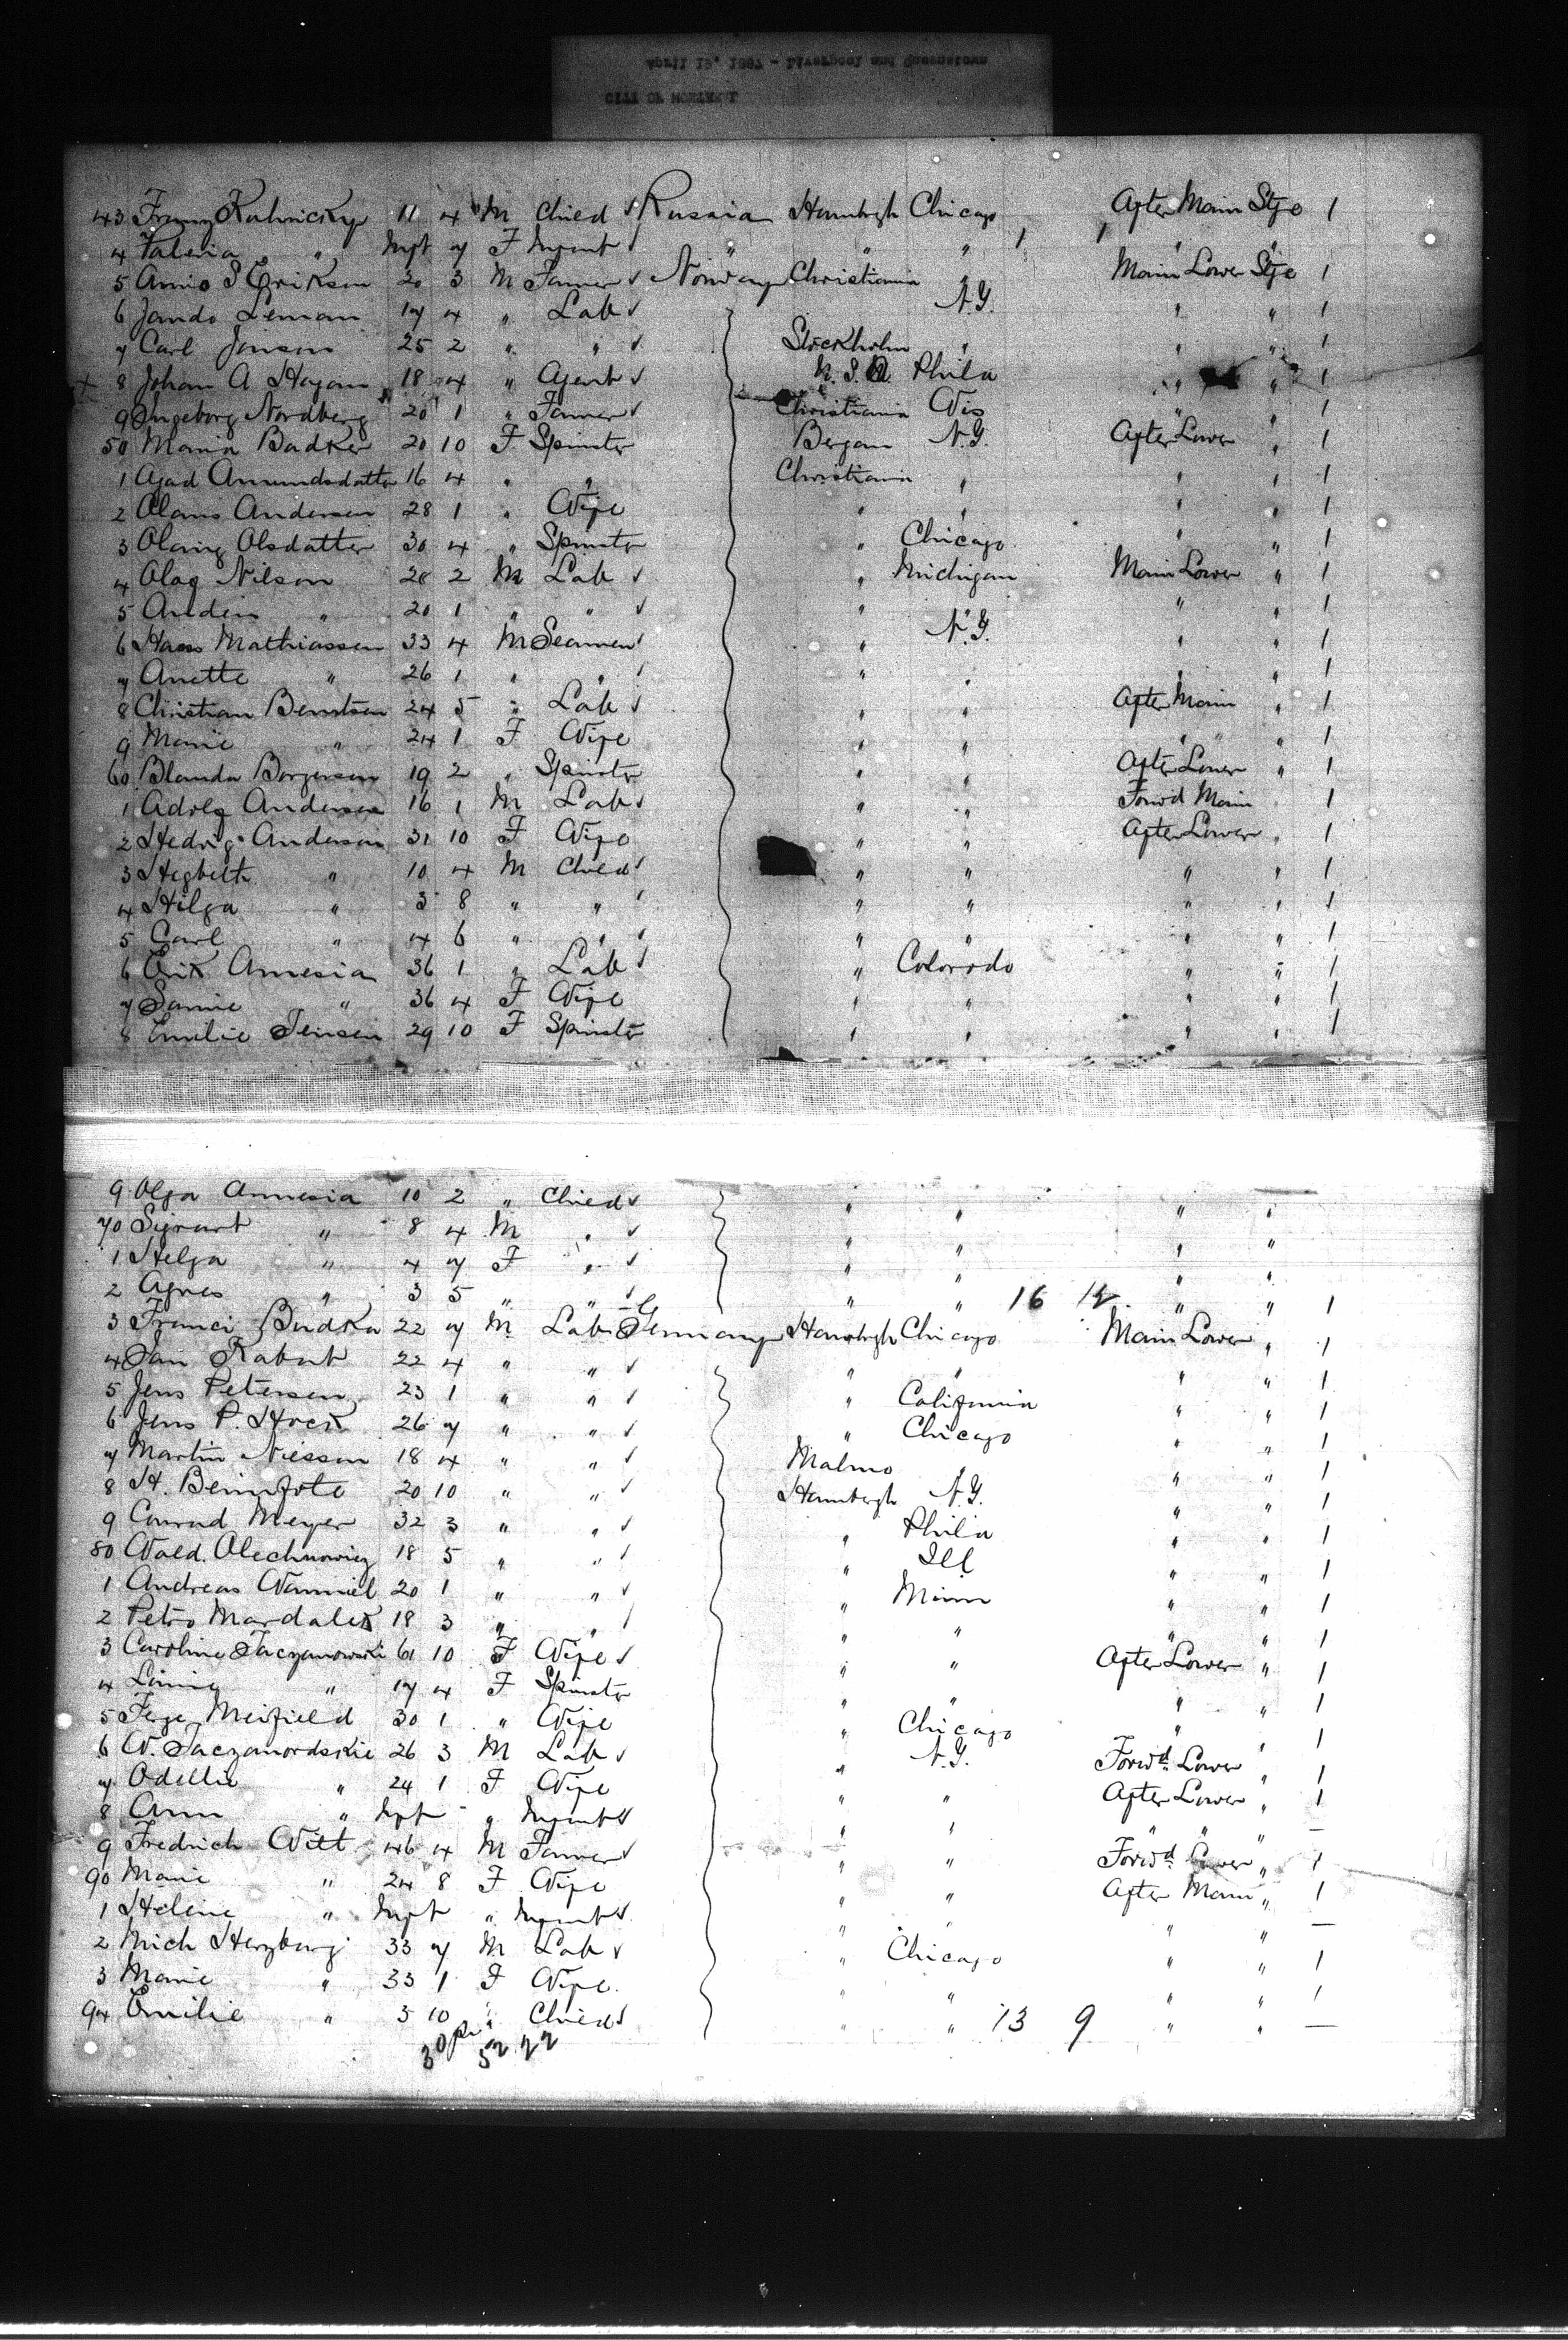 April 15, 1887 - Liverpool and Queenstown
CITY OF MONTREAL
43 Franz Kalnicky 11 4 M Child Russia Hambrgh Chicago After Main Stge 1
4 Valeria " Inft 7 F Infant " " " 1 1 " " 1
5 S Erikson 20 3 M Farmer Norway Christiania " Main Lower Stge 1
6 Leman 17 4 " Lab N.Y. " " 1
7 Carl Jonson 25 2 " " Stockholm " " " 1
X 8 Johan A Hagan 18 4 " Agent U.S.A. Phila " " 1
9 Ingeborg Nordberg 20 1 " Farmer Christiania Wis " 1
50 Maria Badker 20 10 F Spinster Bergan N.Y. After Lower " 1
1 Amundsdatter 16 4 " " Christiania " " " 1
2 Andersen 28 1 " Wife " " " " 1
3 Olsdatter 30 4 " Spinster " Chicago " " 1
4 Olaf Nilson 28 2 M Lab " Michigan Main Lower " 1
5 " 20 1 " " " " " 1
6 Hans Mathiassen 33 4 M Seaman " N.Y. " " 1
7 Anette " 26 1 " " " " " 1
8 Christian Berntsen 24 5 " Lab " " After Main " 1
9 Marie " 24 1 F Wife " " " " 1
60 Blanda Borgerson 19 2 " Spinster " " After Lower " 1
1 Adolf Anderson 16 1 M Lab " " Forwd Main 1
2 Hedvig Anderson 31 10 F Wife " " After Lower " 1
3 " 10 4 M Child " " " " 1
4 Hilga " 3 8 " " " " " " 1
5 Carl " 4 6 " " " " " " 1
6 Erik Amnesia 36 1 " Lab " Colorado " " 1
7 " 36 4 F Wife " " " " 1
8 Emilie Jensen 29 10 F Spinster " " " " 1
9 Olga Amnesia 10 2 " Child " " " "
70 Sigvart " 8 4 M " " " " "
1 Helga " 4 7 F " " " " "
2 Agnes " 3 5 " " " " 16 12 " " 1
3 Budka 22 7 M Lab Germany Hambrgh Chicago Main Lower " 1
4 Jan 22 4 " " " " " " 1
5 Jens Petersen 23 1 " " " California " " 1
6 Jens P. Hock 26 7 " " " Chicago " " 1
7 Martin 18 4 " " Malmo " " " 1
8 H. 20 10 " " Hambergh N.Y. " " 1
9 Conrad Meyer 32 3 " " " Phila " " 1
80 Wald. Olechnowicz 18 5 " " " Ill " " 1
1 Andreas Wanniel 20 1 " " " Minn " " 1
2 Petro Mardalek 18 3 " " " " " " 1
3 Caroline Taczanowski 61 10 F Wife " " After Lower " 1
4 " 17 4 F Spinster " " " " 1
5 30 1 " Wife " Chicago " " 1
6 W. 26 3 M Lab " N.Y. Forwd Lower " 1
7 Odellia " 24 1 F Wife " " After Lower " 1
8 Ann " Inft - " Infant " " " " " —
9 Fredrich Witt 46 4 M Farmer " " Forwd Lower " 1
90 Marie " 24 8 F Wife " " After Main " 1
1 Helene " Inft " Infant " " " " —
2 Mich Herzburg 33 7 M Lab " Chicago " " 1
3 Marie " 33 1 F Wife " " " " 1
94 Emilie " 3 10 " Child " " 13 9 " " —
30 52 22